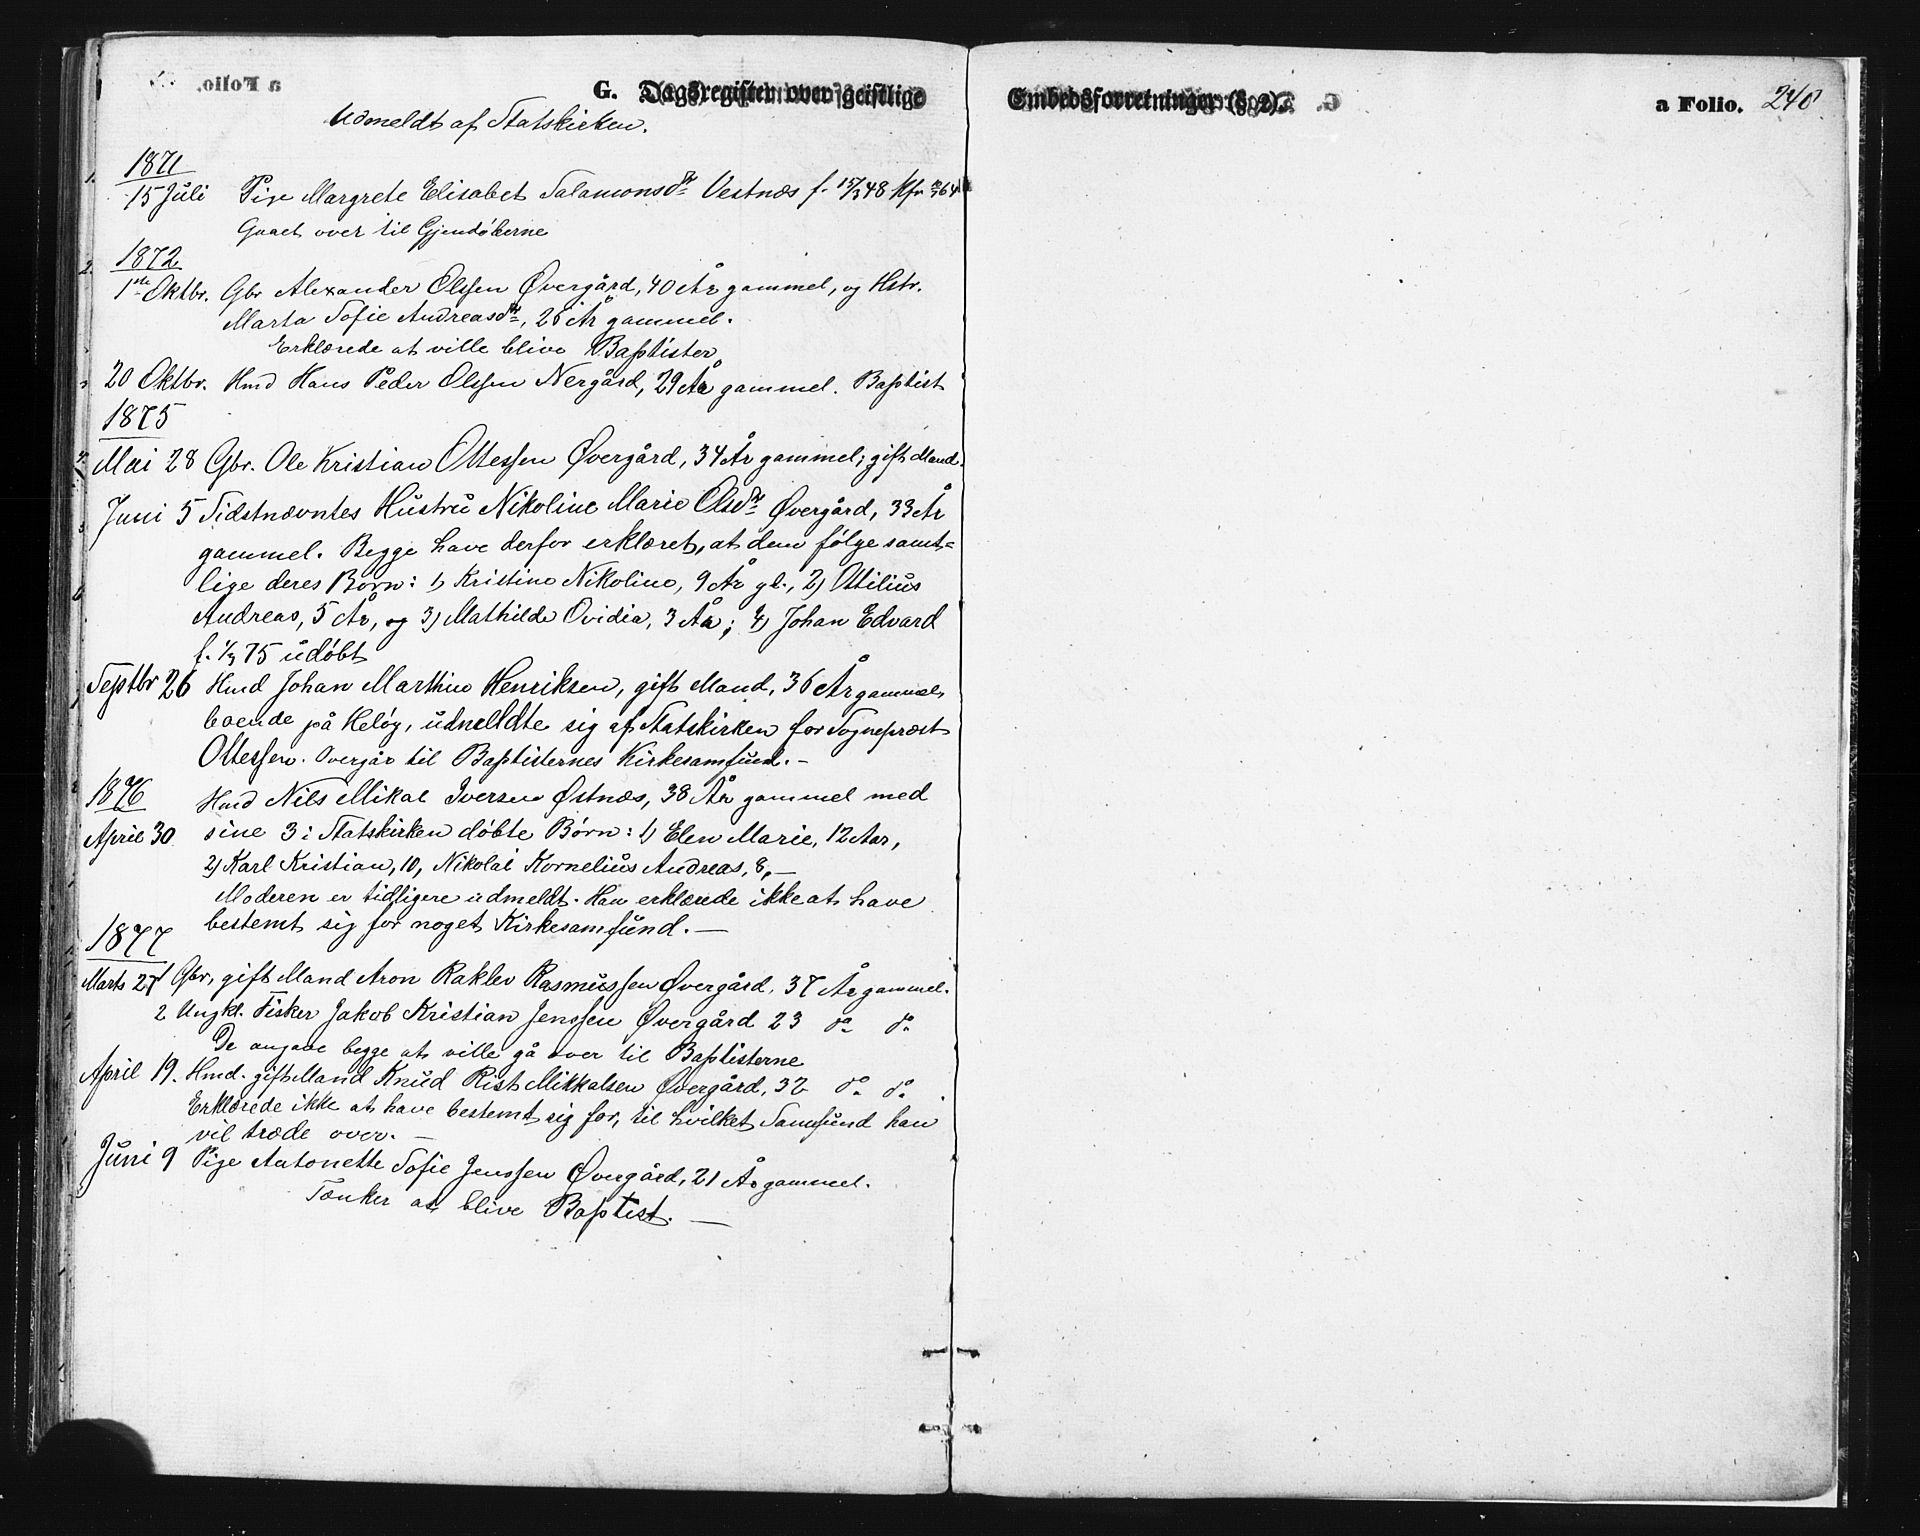 G. Dagsregister over geistlige Embedsforretninger (§ 2). a Folio. 240
Udmeldt af Statskirken.
1871
15 Juli Pige Margrete Elisabet Salamonsdtr Vestnæs f. 15/3 48 Kfr 64
Gaaet over til Gjendøberne
1872
1ste Oktbr. Gbr Alexander Olssen Øvergård, 40 År gammel, og Hstr.
Marta Sofie Andreasdtr, 25 År gammel.
Erklærede at ville blive Baptister
20 Oktbr. Hmd Hans Peder Olssen Nergård, 29 År gammel. Baptist
1875
Mai 28 Gbr. Ole Kristian Ottessen Øvergård, 34 År gammel; gift Mand.
Juni 5 Sidstnævntes Hustru Nikoline Marie Olsdtr Øvergård, 33 År
gammel. Begge have derfor erklæret, at dem følge samt=
lige deres Børn: 1) Kristine Nikoline, 9 År gl., 2) Ottilius
Andreas, 5 År, og 3) Mathilde Ovidia, 3 År; 4) Johan Edvard
f. 1/3 75 udøbt
Septbr 26 Hmd Johan Marthin Henriksen, gift Mand, 36 År gammel
boende på Heløy, udmeldte sig af Statskirken for Sognepræst
Ottessen. Overgår til Baptisternes Kirkesamfund. –
1876 Hmd Nils Mikal Iversen Østnæs, 38 År gammel med
April 30 sine 3 i Statskirken døbte Børn: 1) Elen Marie, 12 Aar,
2) Karl Kristian, 10, Nikolai Kornelius Andreas, 8, –
Moderen er tidligere udmeldt. Han erklærede ikke at have
bestemt sig for noget Kirkesamfund. –
1877
Marts 27 1 Gbr, gift Mand Aron Raklev Rasmussen Øvergård, 37 År gammel.
2 Ungkl. Fisker Jakob Kristian Jenssen Øvergård 23 do do
De angave begge at ville gå over til Baptisterne
April 19. Hmd. gift Mand Knud Rist Mikkalsen Øvergård, 32 do do
Erklærede ikke at have bestemt sig for, til hvilket Samfund han
vil træde over. –
Juni 9 Pige Antonette Sofie Jenssen Øvergård, 21 År gammel.
Tænker at blive Baptist. –